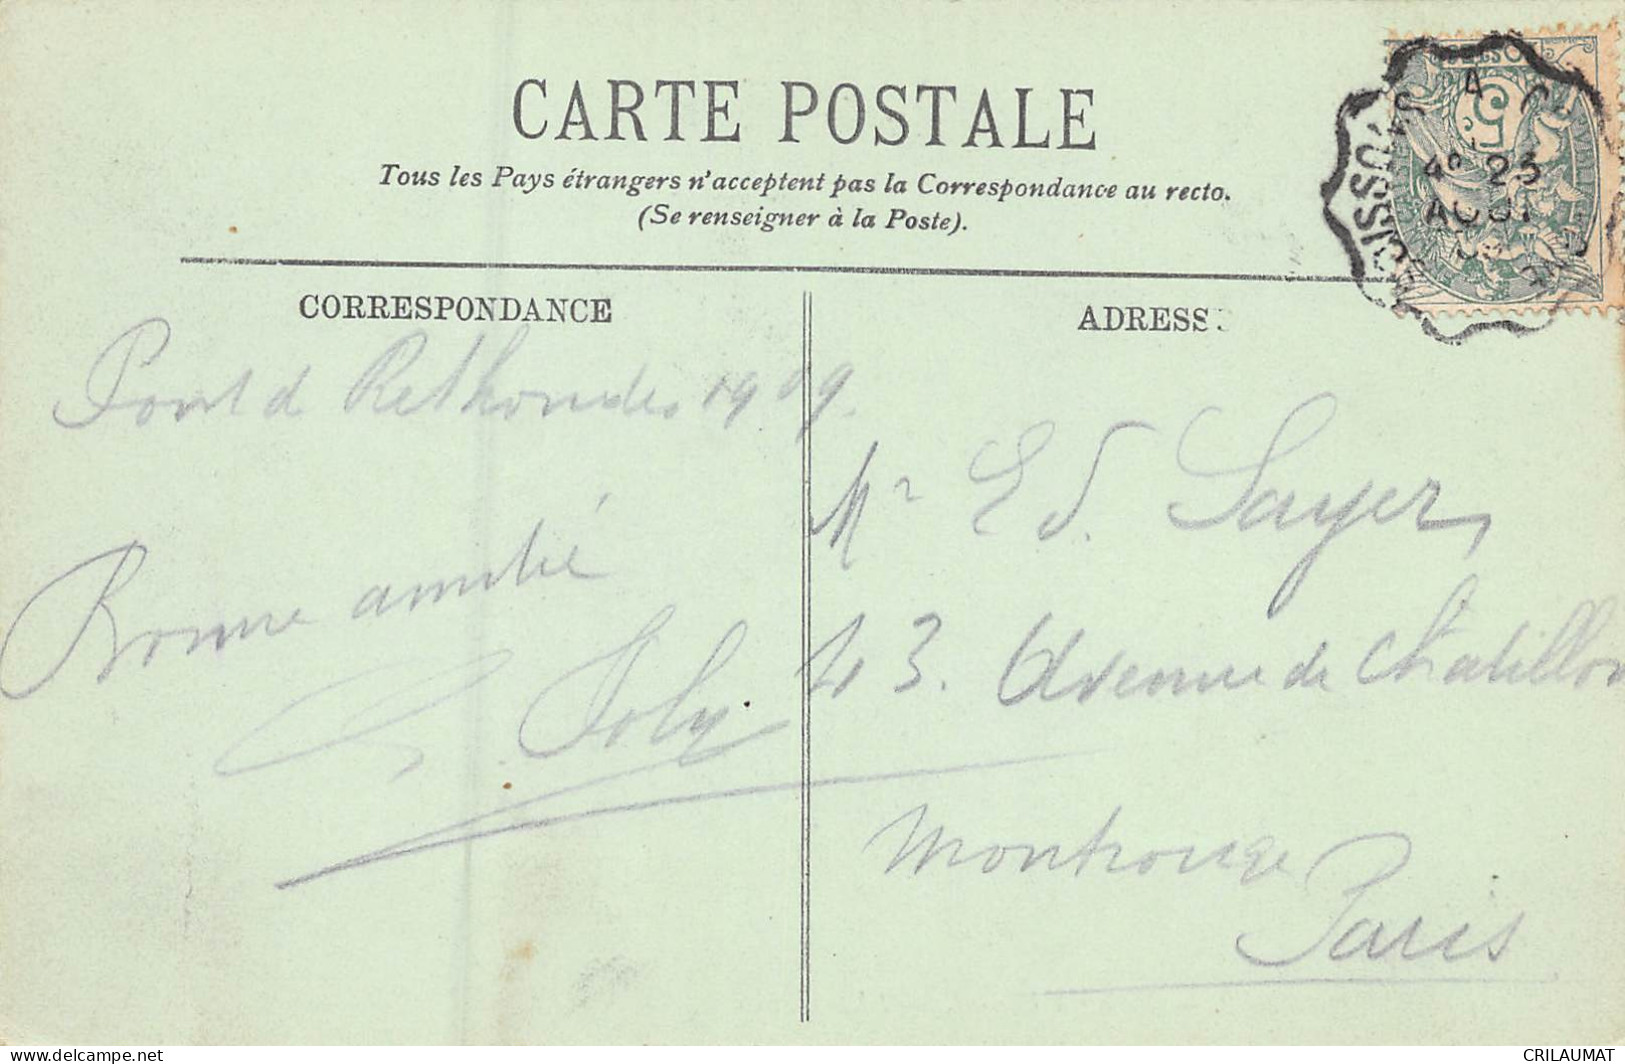 CARTE POSTALE
Tous les Pays étrangers n'acceptent pas la Correspondance au recto.
(Se renseigner à la Poste).
CORRESPONDANCE
ADRESS
Pont d Rethondes 1909.
Bonne amitié
Joly
Mr Ed. Sayer,
43. Avenue de Chatillon
Montrouge
Paris
5
A
4º 23
AOUT
CRILAUMAT